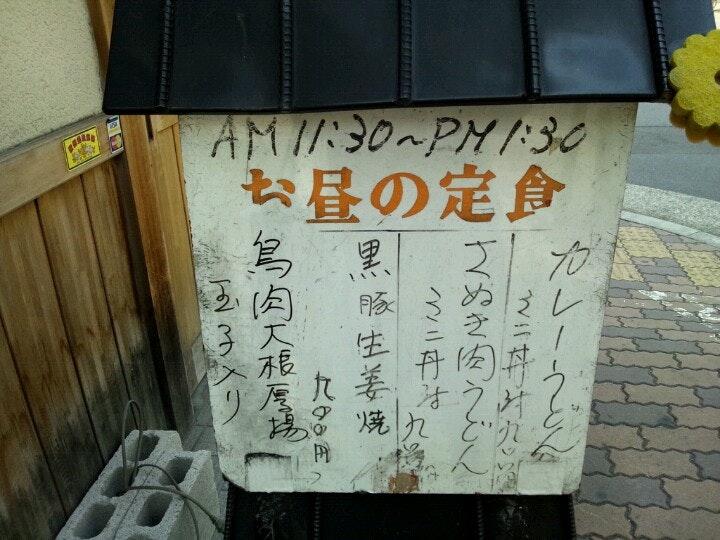 AM 11:30～PM 1:30
お昼の定食
カレーうどん
ミニ丼付 九〇〇円
さぬき肉うどん
ミニ丼付 九〇〇円
黒豚生姜焼
九〇〇円
鳥肉大根厚揚
玉子入り
VISA